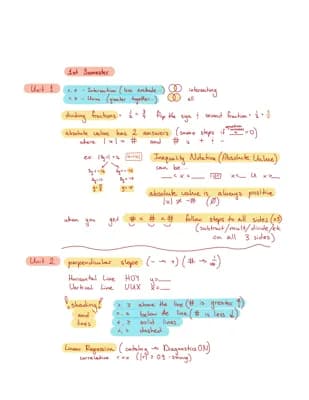 1st Semester
Unit 1
<, ≤ - Intersection (less
intersecting
>, ≥ - Union (greater together)
all
dividing fractions = flip the sign & second fraction
absolute value has 2 answers (same steps if
where |x| = # and # is +
ex.
Inequality Notation (Absolute Value)
can be:
__ < x < __ x < __ U x > __
absolute value is always positive
|x| ≠ -# (Ø)
when you get # < # < # follow steps to all sides (x3)
(subtract/mult/divide/etc
on all 3 sides)
Unit 2
perpendicular slope
Horizontal Line HOY y=__
Vertical Line VUX x=__
shading
and
lines
>, ≥ above the line (# is greater ↑)
<, ≤ below the line (# is less ↓)
≤, ≥ solid lines
<, > dashed
Linear Regression (catalog → Diagnostics ON)
correlation